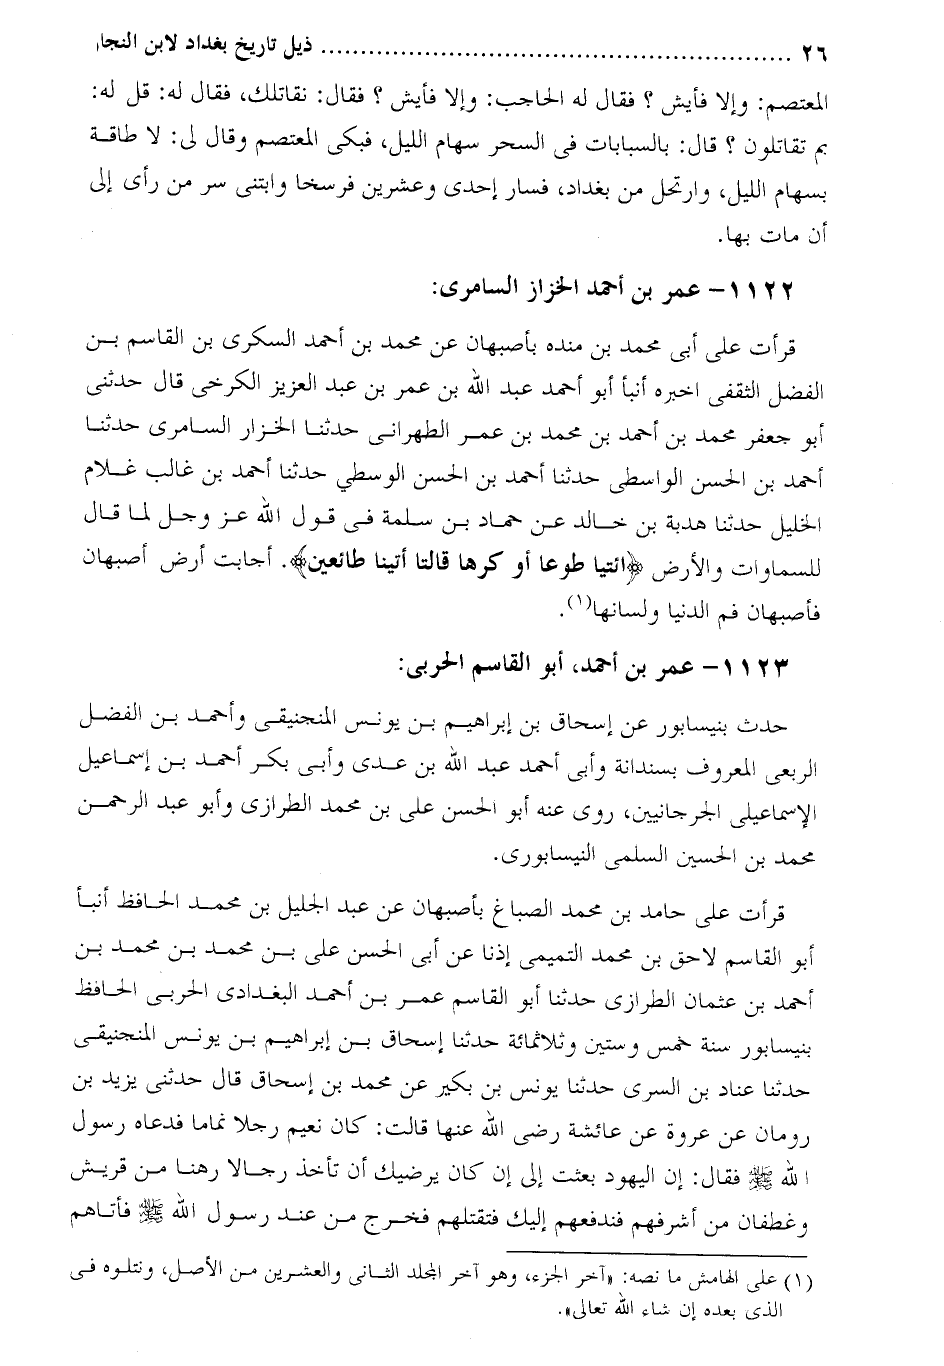 ٢٦ ........................................................ ذيل تاريخ بغداد لابن النجار
المعتصم: وإلا فأيش ؟ فقال له الحاجب: وإلا فأيش ؟ فقال: نقاتلك، فقال له: قل له:
بم تقاتلون ؟ قال: بالسبابات فى السحر سهام الليل، فبكى المعتصم وقال لى: لا طاقة
بسهام الليل، وارتحل من بغداد، فسار إحدى وعشرين فرسخا وابتنى سر من رأى إلى
أن مات بها.
١١٢٢- عمر بن أحمد الخزاز السامرى:
قرأت على أبى محمد بن منده بأصبهان عن محمد بن أحمد السكرى بن القاسم بن
الفضل الثقفى اخبره أنبأ أبو أحمد عبد الله بن عمر بن عبد العزيز الكرخى قال حدثنى
أبو جعفر محمد بن أحمد بن محمد بن عمر الطهرانى حدثنا الخزار السامرى حدثنا
أحمد بن الحسن الواسطى حدثنا أحمد بن الحسن الوسطي حدثنا أحمد بن غالب غلام
الخليل حدثنا هدبة بن خالد عن حماد بن سلمة فى قول الله عز وجل لما قال
للسماوات والأرض ﴿ائتيا طوعا أو كرها قالتا أتينا طائعين﴾. أجابت أرض أصبهان
فأصبهان فم الدنيا ولسانها(١).
١١٢٣- عمر بن أحمد، أبو القاسم الحربى:
حدث بنيسابور عن إسحاق بن إبراهيم بن يونس المنجنيقى وأحمد بن الفضل
الربعى المعروف بسندانة وأبى أحمد عبد الله بن عدى وأبى بكر أحمد بن إسماعيل
الإسماعيلى الجرجانيين، روى عنه أبو الحسن على بن محمد الطرازى وأبو عبد الرحمن
محمد بن الحسين السلمى النيسابورى.
قرأت على حامد بن محمد الصباغ بأصبهان عن عبد الجليل بن محمد الحافظ أنبأ
أبو القاسم لاحق بن محمد التميمى إذنا عن أبى الحسن على بن محمد بن محمد بن
أحمد بن عثمان الطرازى حدثنا أبو القاسم عمر بن أحمد البغدادى الحربى الحافظ
بنيسابور سنة خمس وستين وثلاثمائة حدثنا إسحاق بن إبراهيم بن يونس المنجنيقى
حدثنا عناد بن السرى حدثنا يونس بن بكير عن محمد بن إسحاق قال حدثنى يزيد بن
رومان عن عروة عن عائشة رضى الله عنها قالت: كان نعيم رجلا نماما فدعاه رسول
الله ﷺ فقال: إن اليهود بعثت إلى إن كان يرضيك أن تأخذ رجالا رهنا من قريش
وغطفان من أشرفهم فندفعهم إليك فتقتلهم فخرج من عند رسول الله ﷺ فأتاهم
(١) على الهامش ما نصه: «آخر الجزء، وهو آخر المجلد الثانى والعشرين من الأصل، ونتلوه فى
الذى بعده إن شاء الله تعالى».